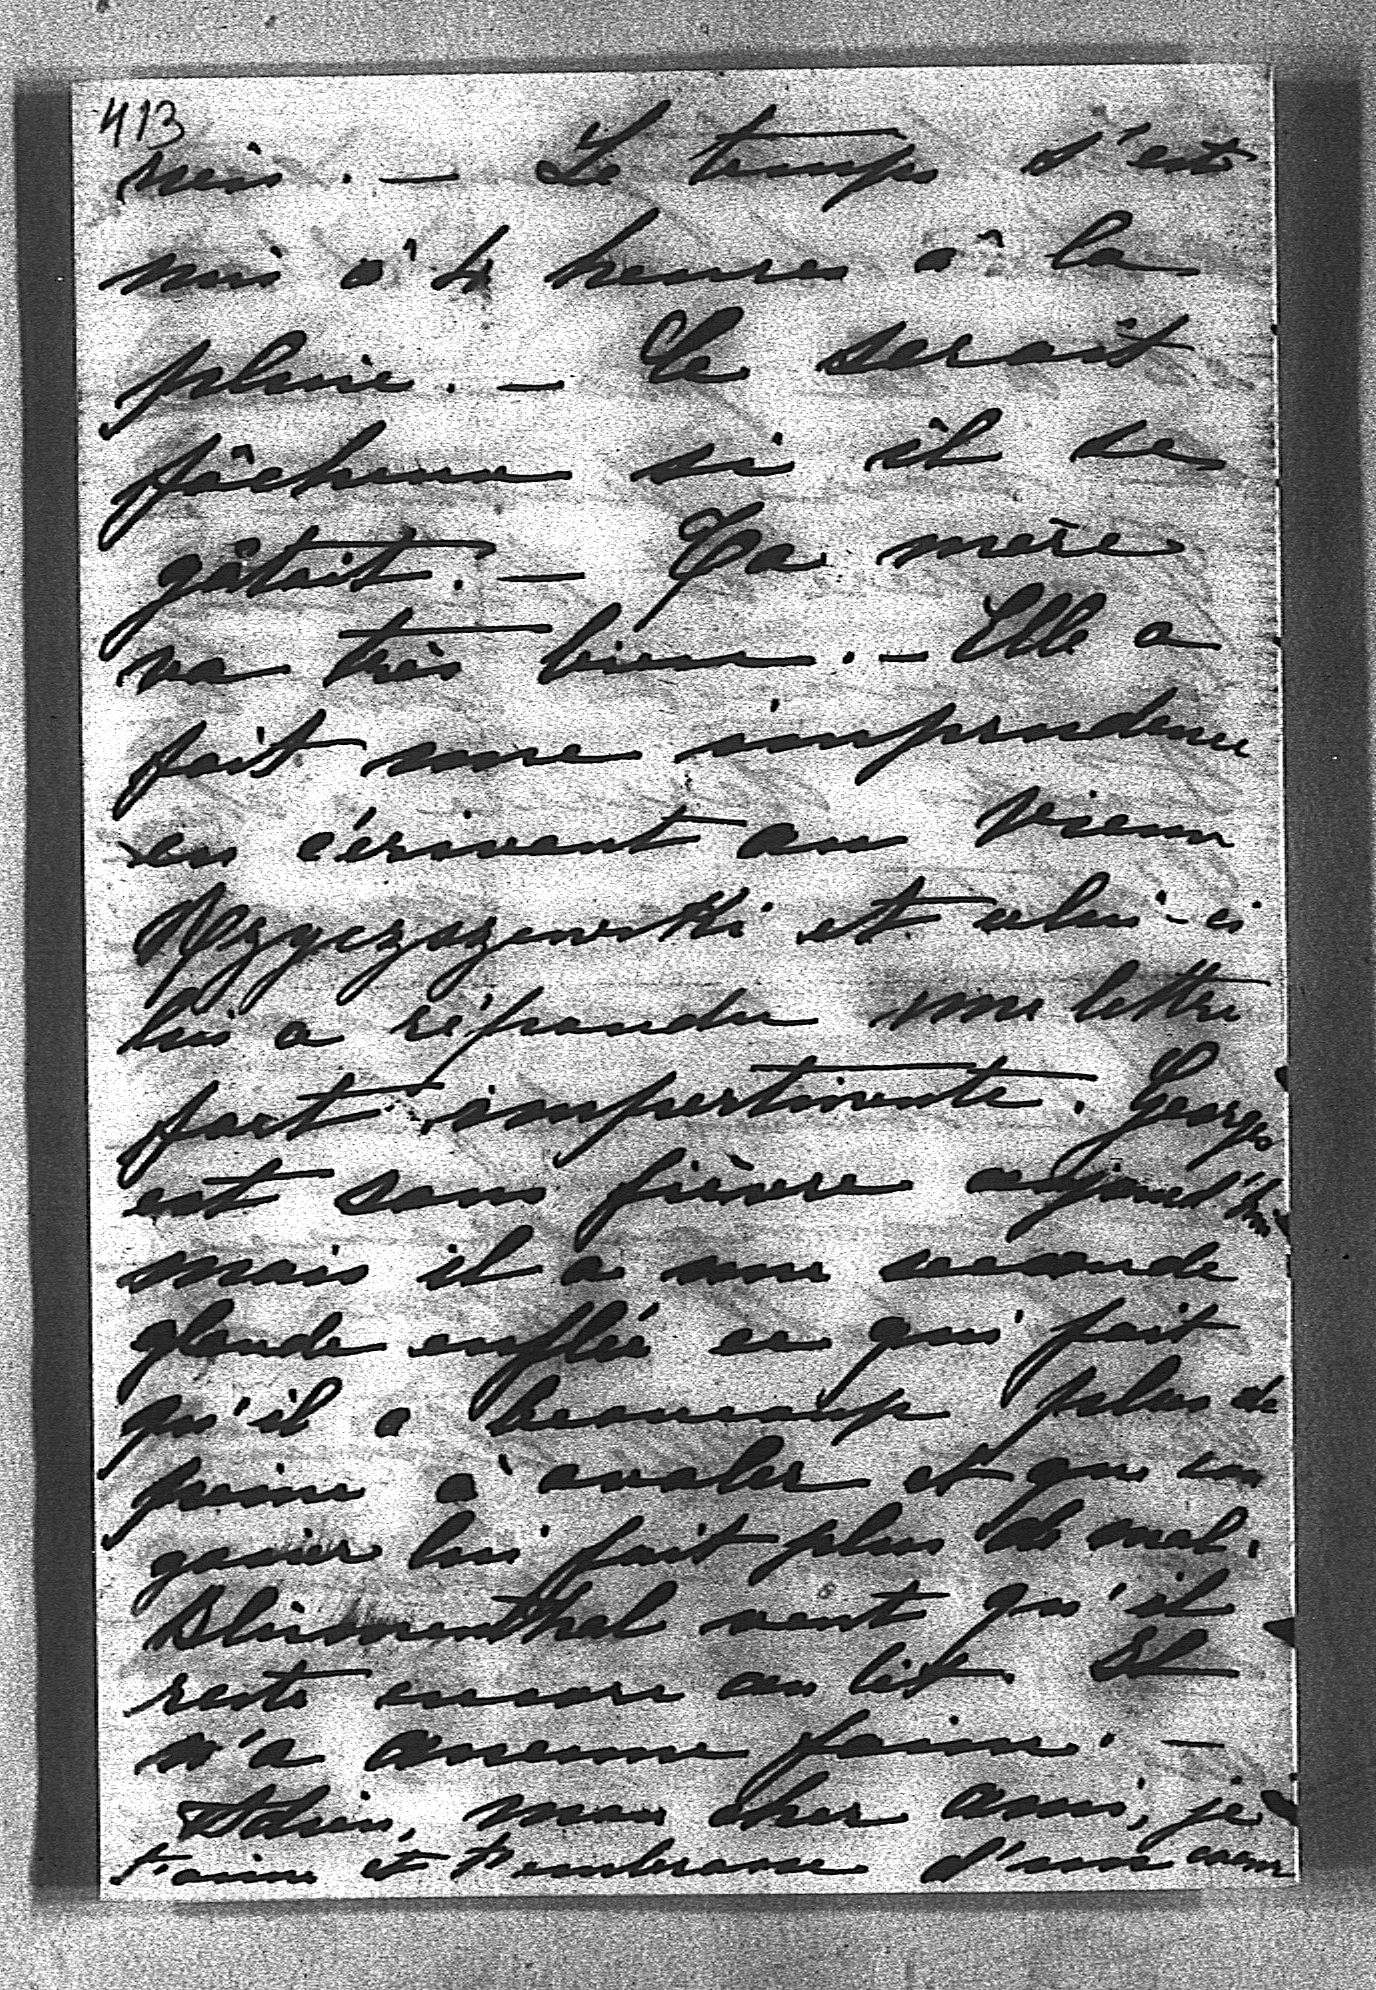 413
Le temps s'est
mis à 4 heures à la
pluie. — Ce serait
fâcheux si il se
gâtait. — Ta mère
va très bien. — Elle a
fait une imprudence
en écrivant au vieux
et celui-ci
lui a répondu une lettre
fort impertinente. Georges
est sans fièvre aujourd'hui
mais il a une seconde
glande enflée ce qui fait
qu'il a beaucoup plus de
peine à avaler et que son
gosier lui fait plus de mal.
Blumenthal veut qu'il
reste encore au lit. Il
n'a aucune faim. —
Adieu, mon cher ami, je
t'aime et t'embrasse d'un coeur